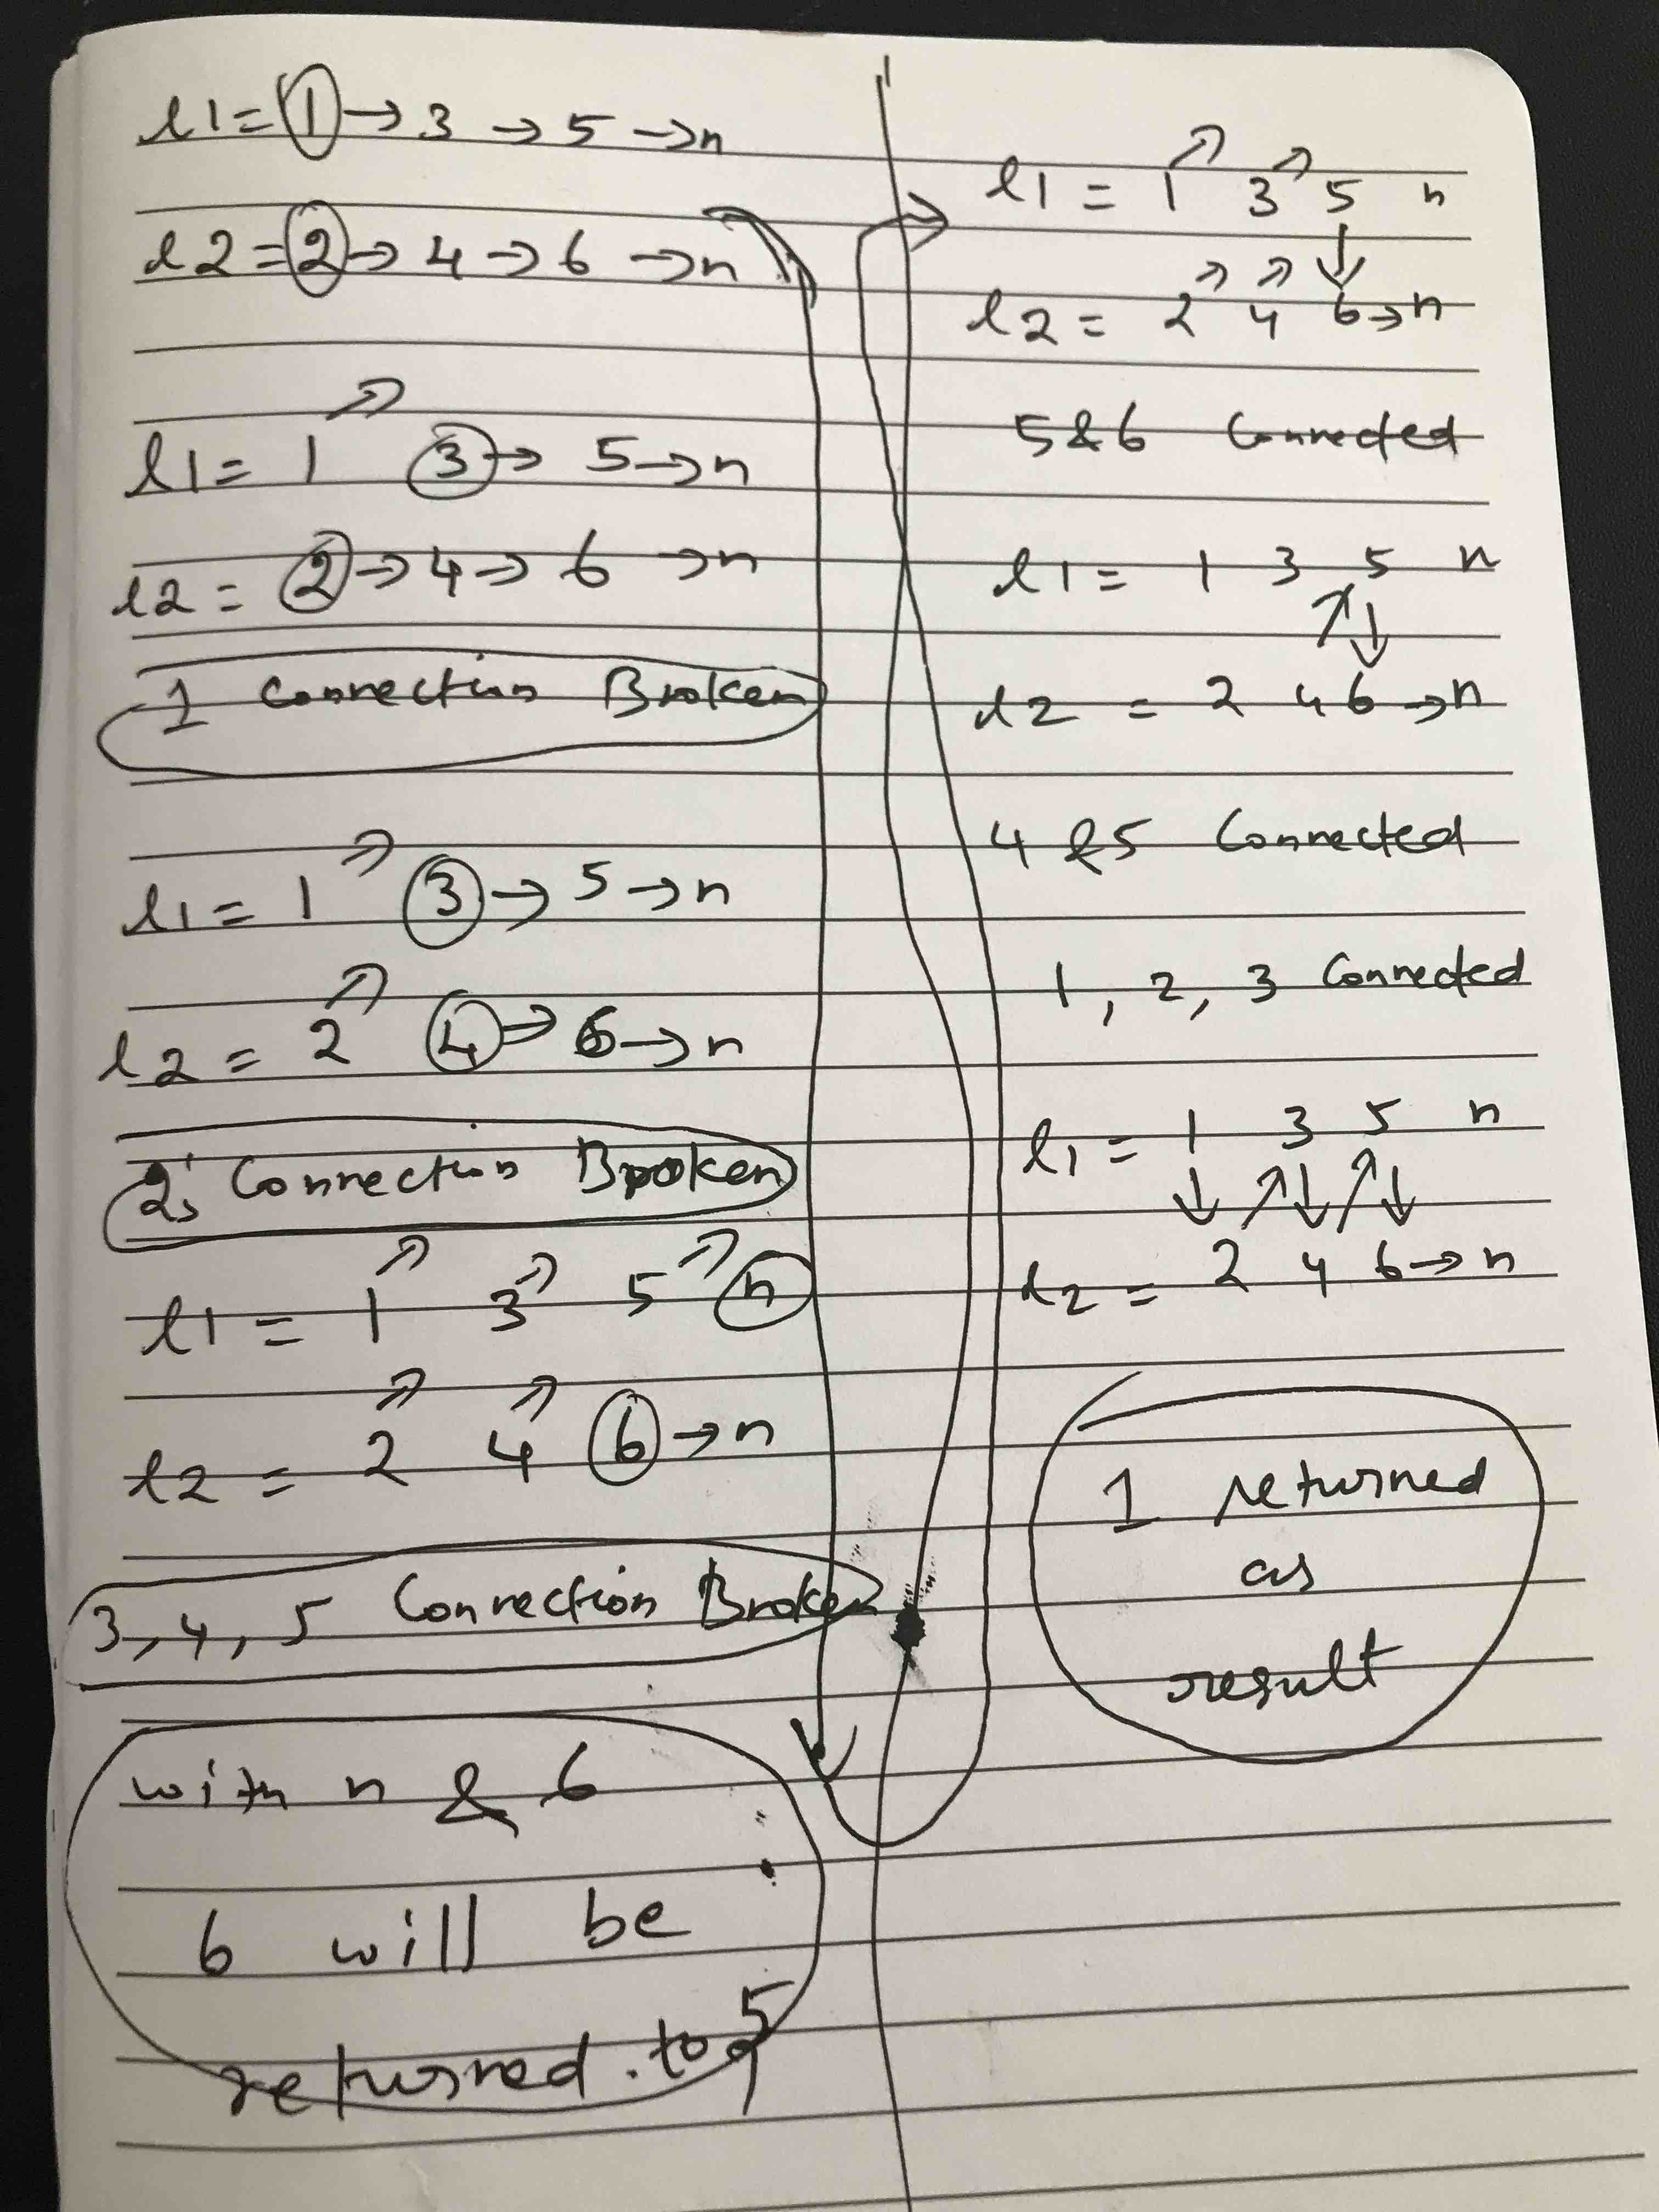 l1 = 1 → 3 → 5 → n
l2 = 2 → 4 → 6 → n
l1 = 1 ↗ 3 → 5 → n
l2 = 2 → 4 → 6 → n
1 Connection Broken
l1 = 1 ↗ 3 → 5 → n
l2 = 2 ↗ 4 → 6 → n
2; Connection Broken
l1 = 1 ↗ 3 ↗ 5 ↗ n
l2 = 2 ↗ 4 ↗ 6 → n
3, 4, 5 Connection Broken
with n & 6
6 will be
returned. to 5
l1 = 1 ↗ 3 ↗ 5 n
↓
l2 = 2 ↗ 4 ↗ 6 → n
5 & 6 Connected
l1 = 1 3 5 n
↗ ↓
l2 = 2 4 6 → n
4 & 5 Connected
1, 2, 3 Connected
l1 = 1 3 5 n
↓ ↗ ↓ ↗ ↓
l2 = 2 4 6 → n
1 returned
as
result